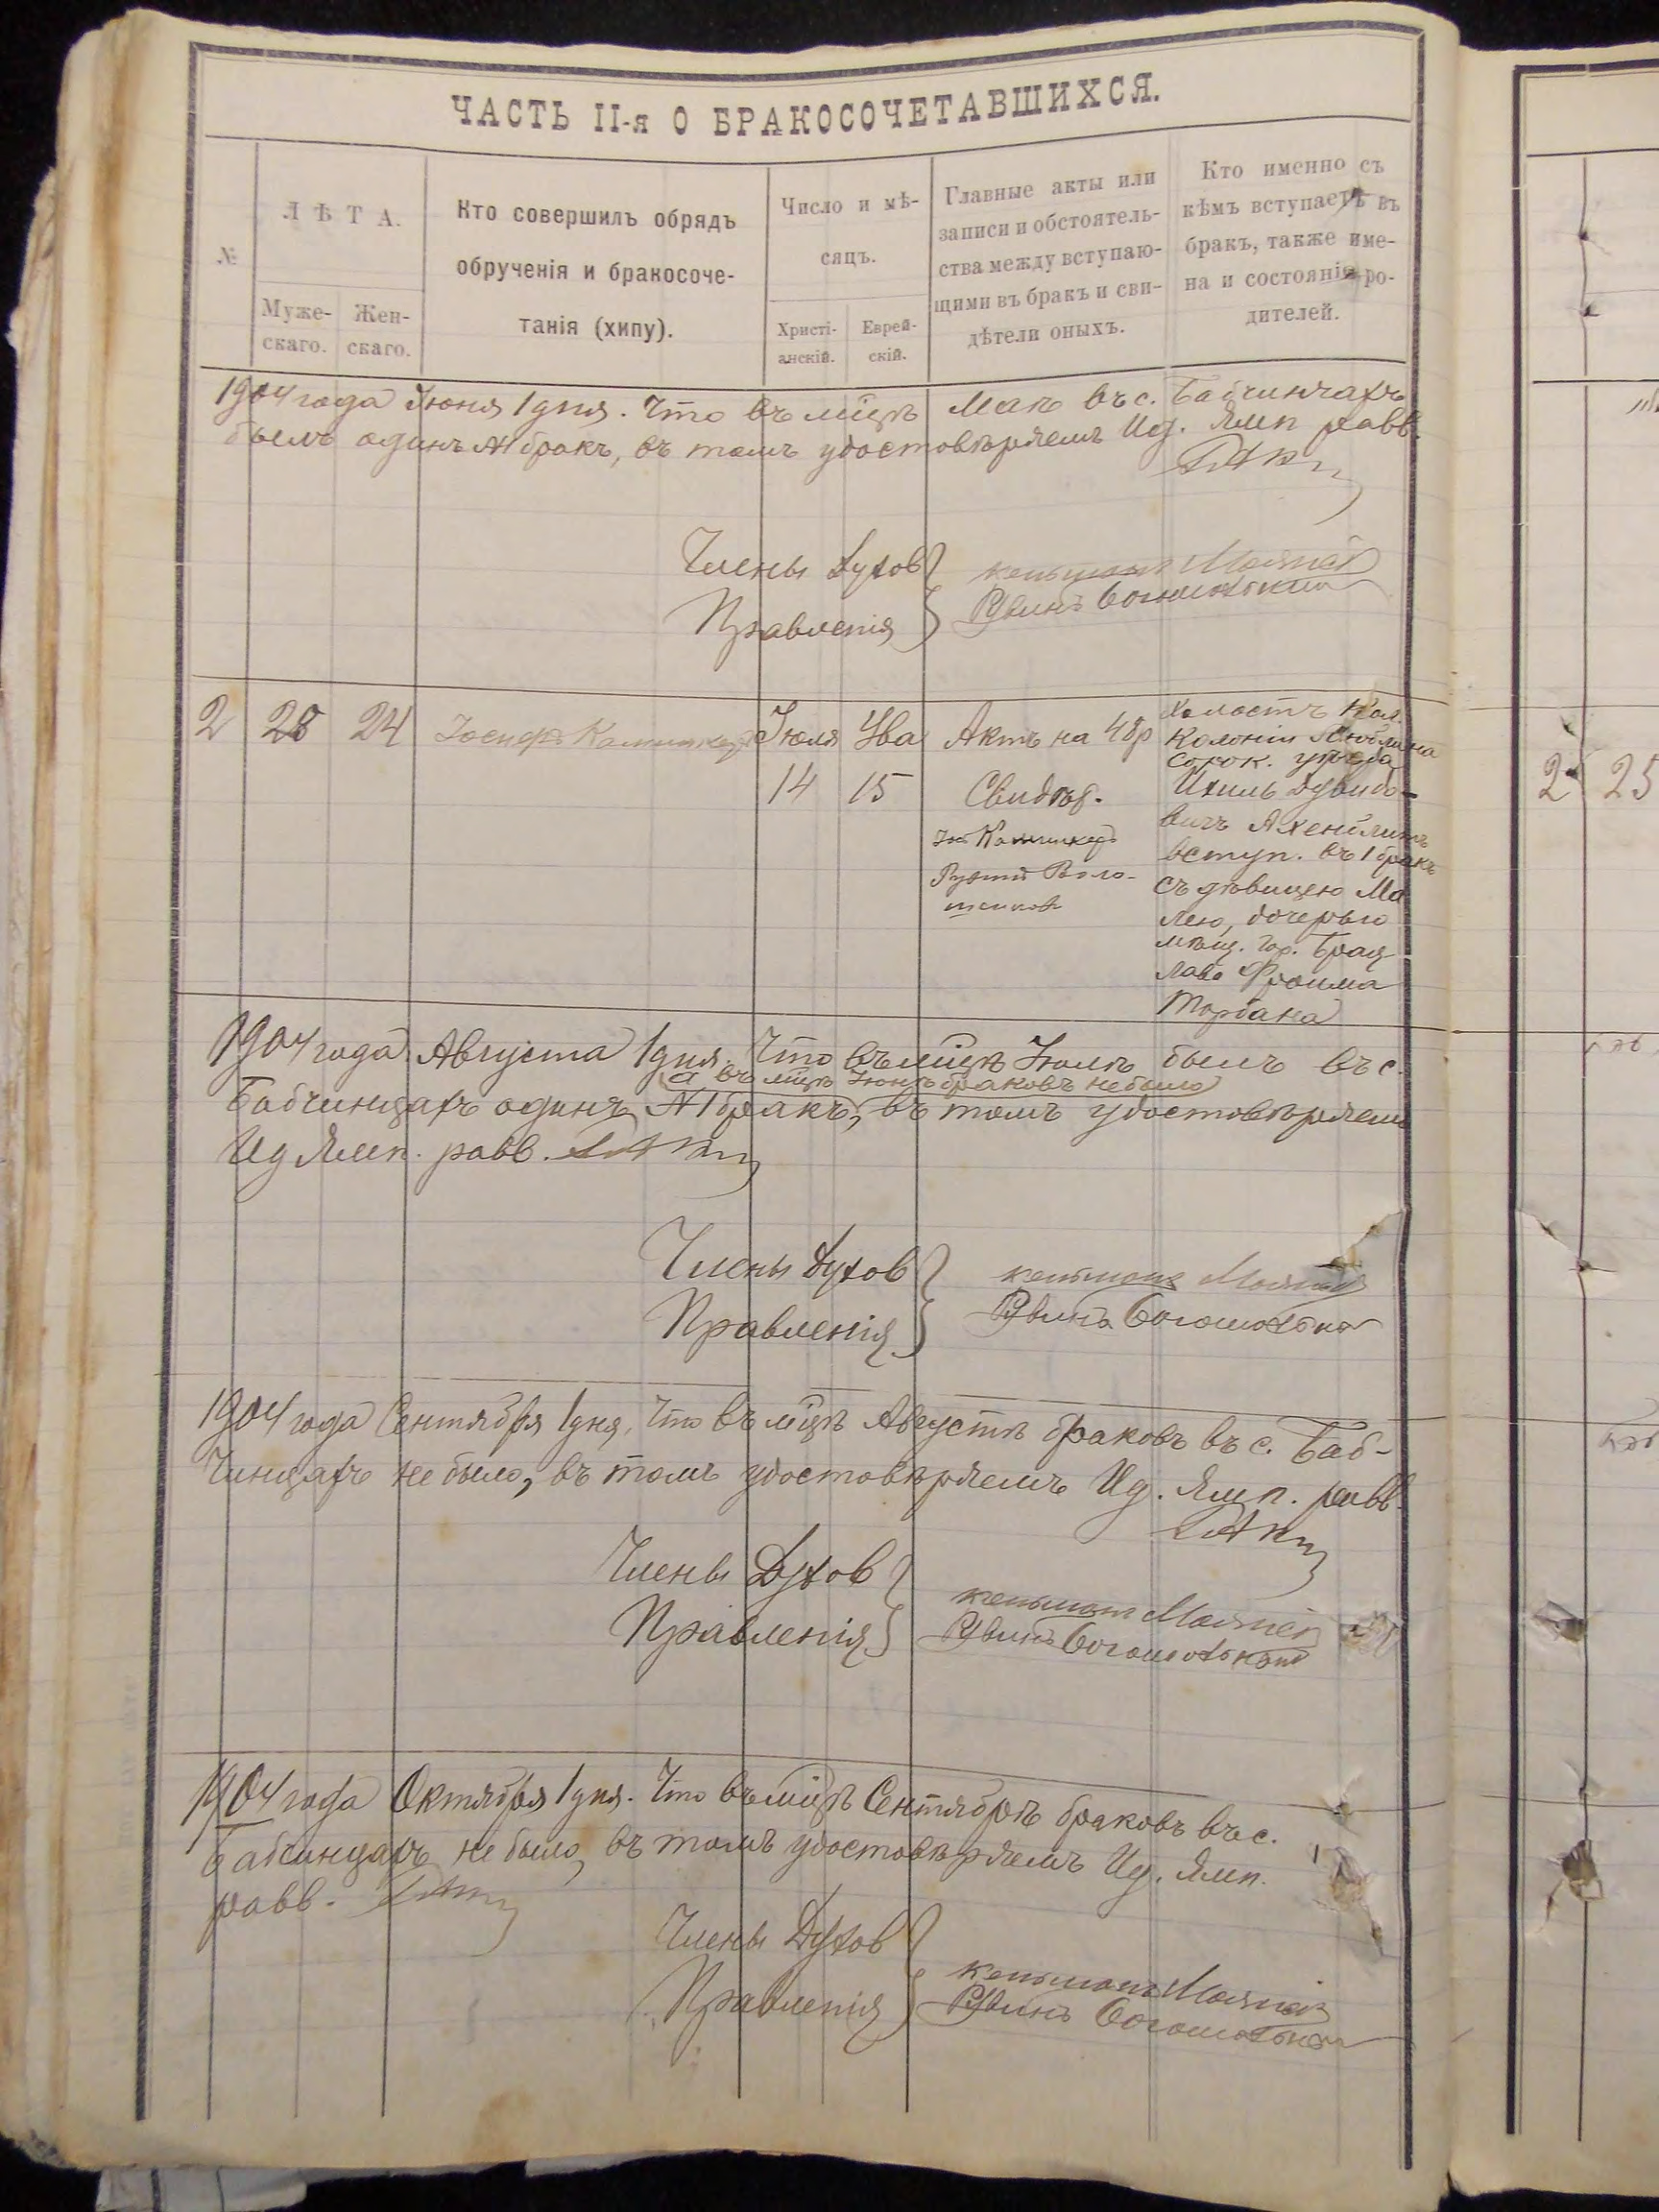 ЧАСТЬ II-я О БРАКОСОЧЕТАВШИХСЯ.
№
ЛѢТА.
Муже-
скаго.
Жен-
скаго.
Кто совершилъ обрядъ
обрученія и бракосоче-
танія (хипу).
Число и мѣ-
сяцъ.
Христі-
анскій.
Еврей-
скій.
Главные акты или
записи и обстоятель-
ства между вступаю-
щими въ бракъ и сви-
дѣтели оныхъ.
Кто именно съ
кѣмъ вступаетъ въ
бракъ, также име-
на и состоянія ро-
дителей.
1904 года Іюня 1 дня. Что въ мцѣ Маѣ въ с. Бабчинцахъ
былъ одинъ №1 бракъ, въ томъ удостовѣряемъ Ид. Ямп. равв.
Члены Духов
Правленія
Рувинъ
2 28 24
Іосифъ
Іюля
14
Ува
15
Актъ на 48р
Свидѣт.
Холостъ
Колоніи
Сорок. уѣзда
Ихиль Дувидо-
вичъ
вступ. въ 1 бракъ
съ дѣвицею Ма
лею, дочерью
мѣщ. гор. Брац
лава Фроима
Торбана
1904 года Августа 1 дня. Что въ мцѣ Іюлѣ былъ въ с.
а въ мцѣ Іюнѣ браковъ не было
Бабчинцахъ одинъ №1 бракъ, въ томъ удостовѣряемъ
Ид Ямп. равв.
Члены Духов
Правленія
Рувинъ
1904 года Сентября 1 дня, Что въ мцѣ Августѣ браковъ въ с. Баб-
чинцахъ не было, въ томъ удостовѣряемъ Ид. Ямп. равв.
Члены Духов
Правленія
Рувинъ
1904 года Октября 1 дня. Что въ мцѣ Сентябрѣ браковъ въ с.
Бабчинцахъ не было, въ томъ удостовѣряемъ Ид. Ямп.
равв.
Члены Духов
Правленія
Рувинъ
2 25